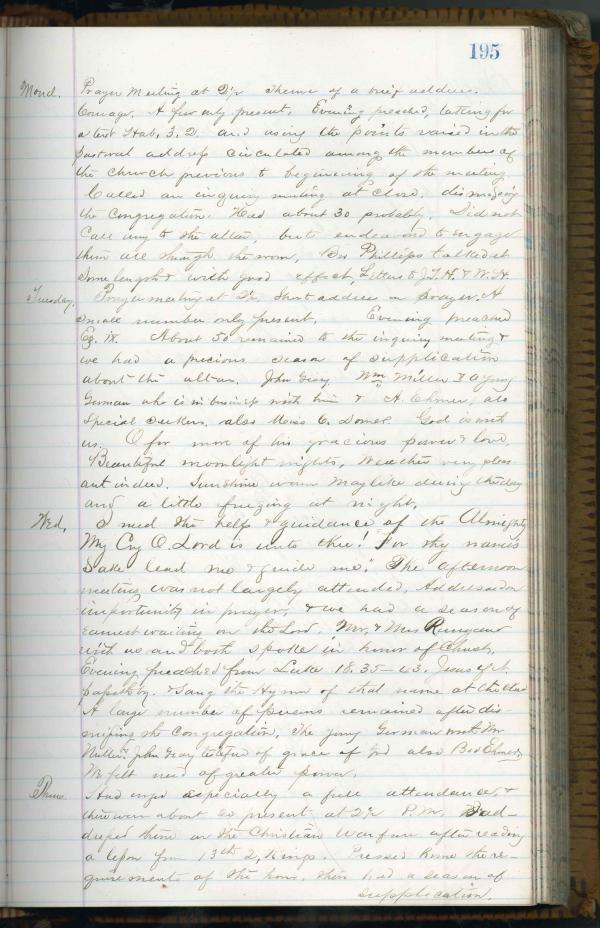 195
Mond. Prayer Meeting at 2½ Theme of a brief address.
Courage. A few only present. Evening preached, taking for
a text Hab. 3.2. and using the points raised in the
pastoral address circulated among the members of
the church previous to beginning of the meeting.
Called an inquiry meeting at close, dismissing
the congregation. Had about 30 probably. Did not
call any to the altar, but endeavored to engage
them all through the room, Bro Phillips talked at
some length & with good effect, Letters to J. T. H. & W. H.
Tuesday. Prayer meeting at 2½. Short address on prayer. A
small number only present. Evening preached
About 50 remained to the inquiry meeting &
we had a precious season of supplication
about the altar. John Wm Miller & a young
German who is in business with him & A. also
special seekers. also Miss C. Domer. God is with
us. O for more of his gracious power & love.
Beautiful moonlight nights, Weather very pleas
ant indeed. Sunshine warm Maylike during the day
and a little freezing at night.
Wed, I need the help & guidance of the Almighty
My Cry O Lord is unto thee! "For thy name's
sake lead me & guide me." The afternoon
meeting was not largely attended. Address on
importunity in prayer, & we had a season of
earnest waiting on the Lord. Mr. & Mrs
with us and both spoke in honor of Christ.
Evening preached from Luke 18.35-43. Jesus of N.
passeth by. & Sang the Hymn of that name at the
A large number of persons remained after dis-
missing the Congregation. The young German with Wm
Miller & John testified of grace of God also Bro
We felt need of greater power.
Thur. Had urged especially a full attendance &
there were about 20 present at 2½ P.M. ad-
dressed them on the Christian Warfare after reading
a lesson from 13th 2, Kings. Pressed home the re-
quirements of the hour, then had a season of
supplication.